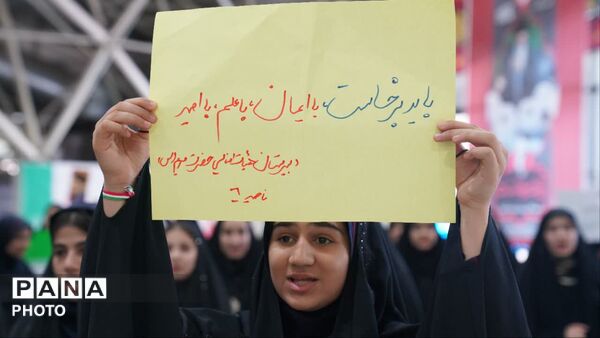 باید برخاست، با ایمان، با علم، با امید
دبیرستان هیئت امنایی حضرت مریم (س)
ناحیه ۶
PANA
PHOTO